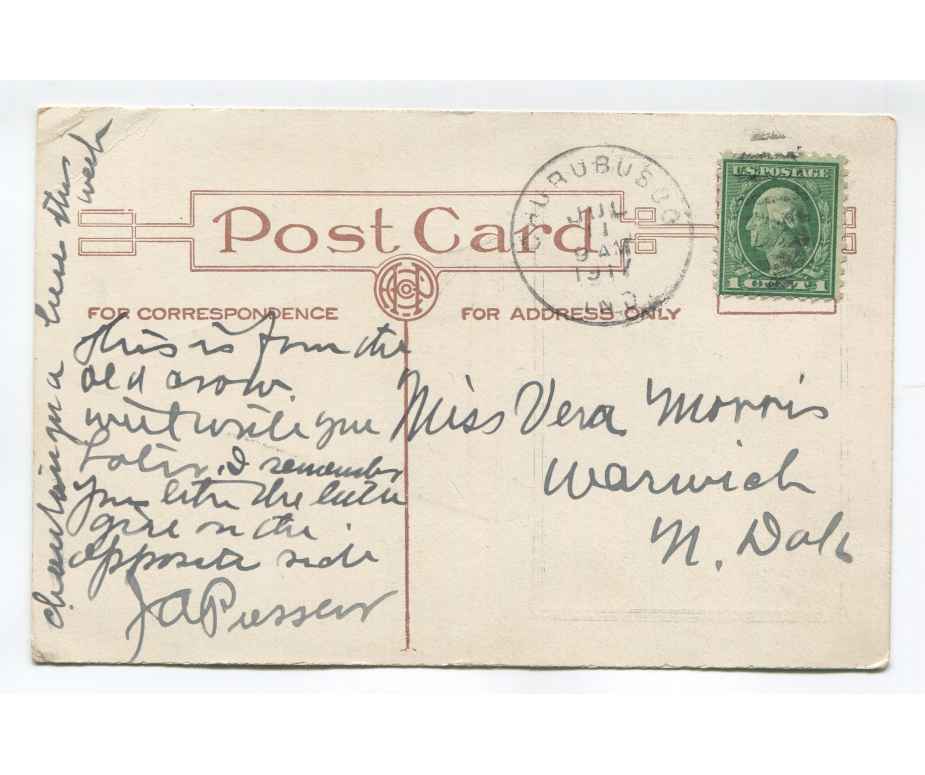 Post Card
CHURUBUSCO
JUL
1
9 AM
191
IND.
U.S. POSTAGE
1 CENT 1
FOR CORRESPONDENCE
FOR ADDRESS ONLY
This is from the
old crow.
will write you
Later. I remember
you like the little
girl on the
opposite side
J A
chautauqua here this
week
Miss Vera Morris
Warwick
N. Dak